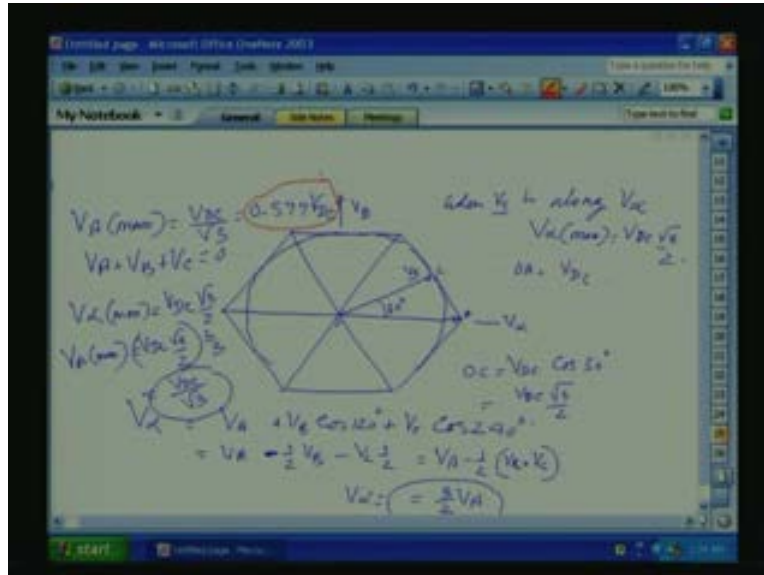 Untitled page - Microsoft Office OneNote 2003
File Edit View Insert Format Tools Window Help
Type a question for help
100%
My Notebook
General
Side Notes
Meetings
Type text to find
V_A (max) = V_DC/√3 = 0.577 V_DC
V_B
when V_s is along V_α
V_A + V_B + V_C = 0
V_α (max) = V_DC √3/2
OA = V_DC
V_α (max) = V_DC √3/2
30°
V_α
OC = V_DC Cos 30°
= V_DC √3/2
V_DC/√3
V_α = V_A + V_B Cos 120° + V_C Cos 240°
= V_A - 1/2 V_B - V_C 1/2 = V_A - 1/2 (V_B + V_C)
V_α = = 3/2 V_A
start
Untitled page - Micro...